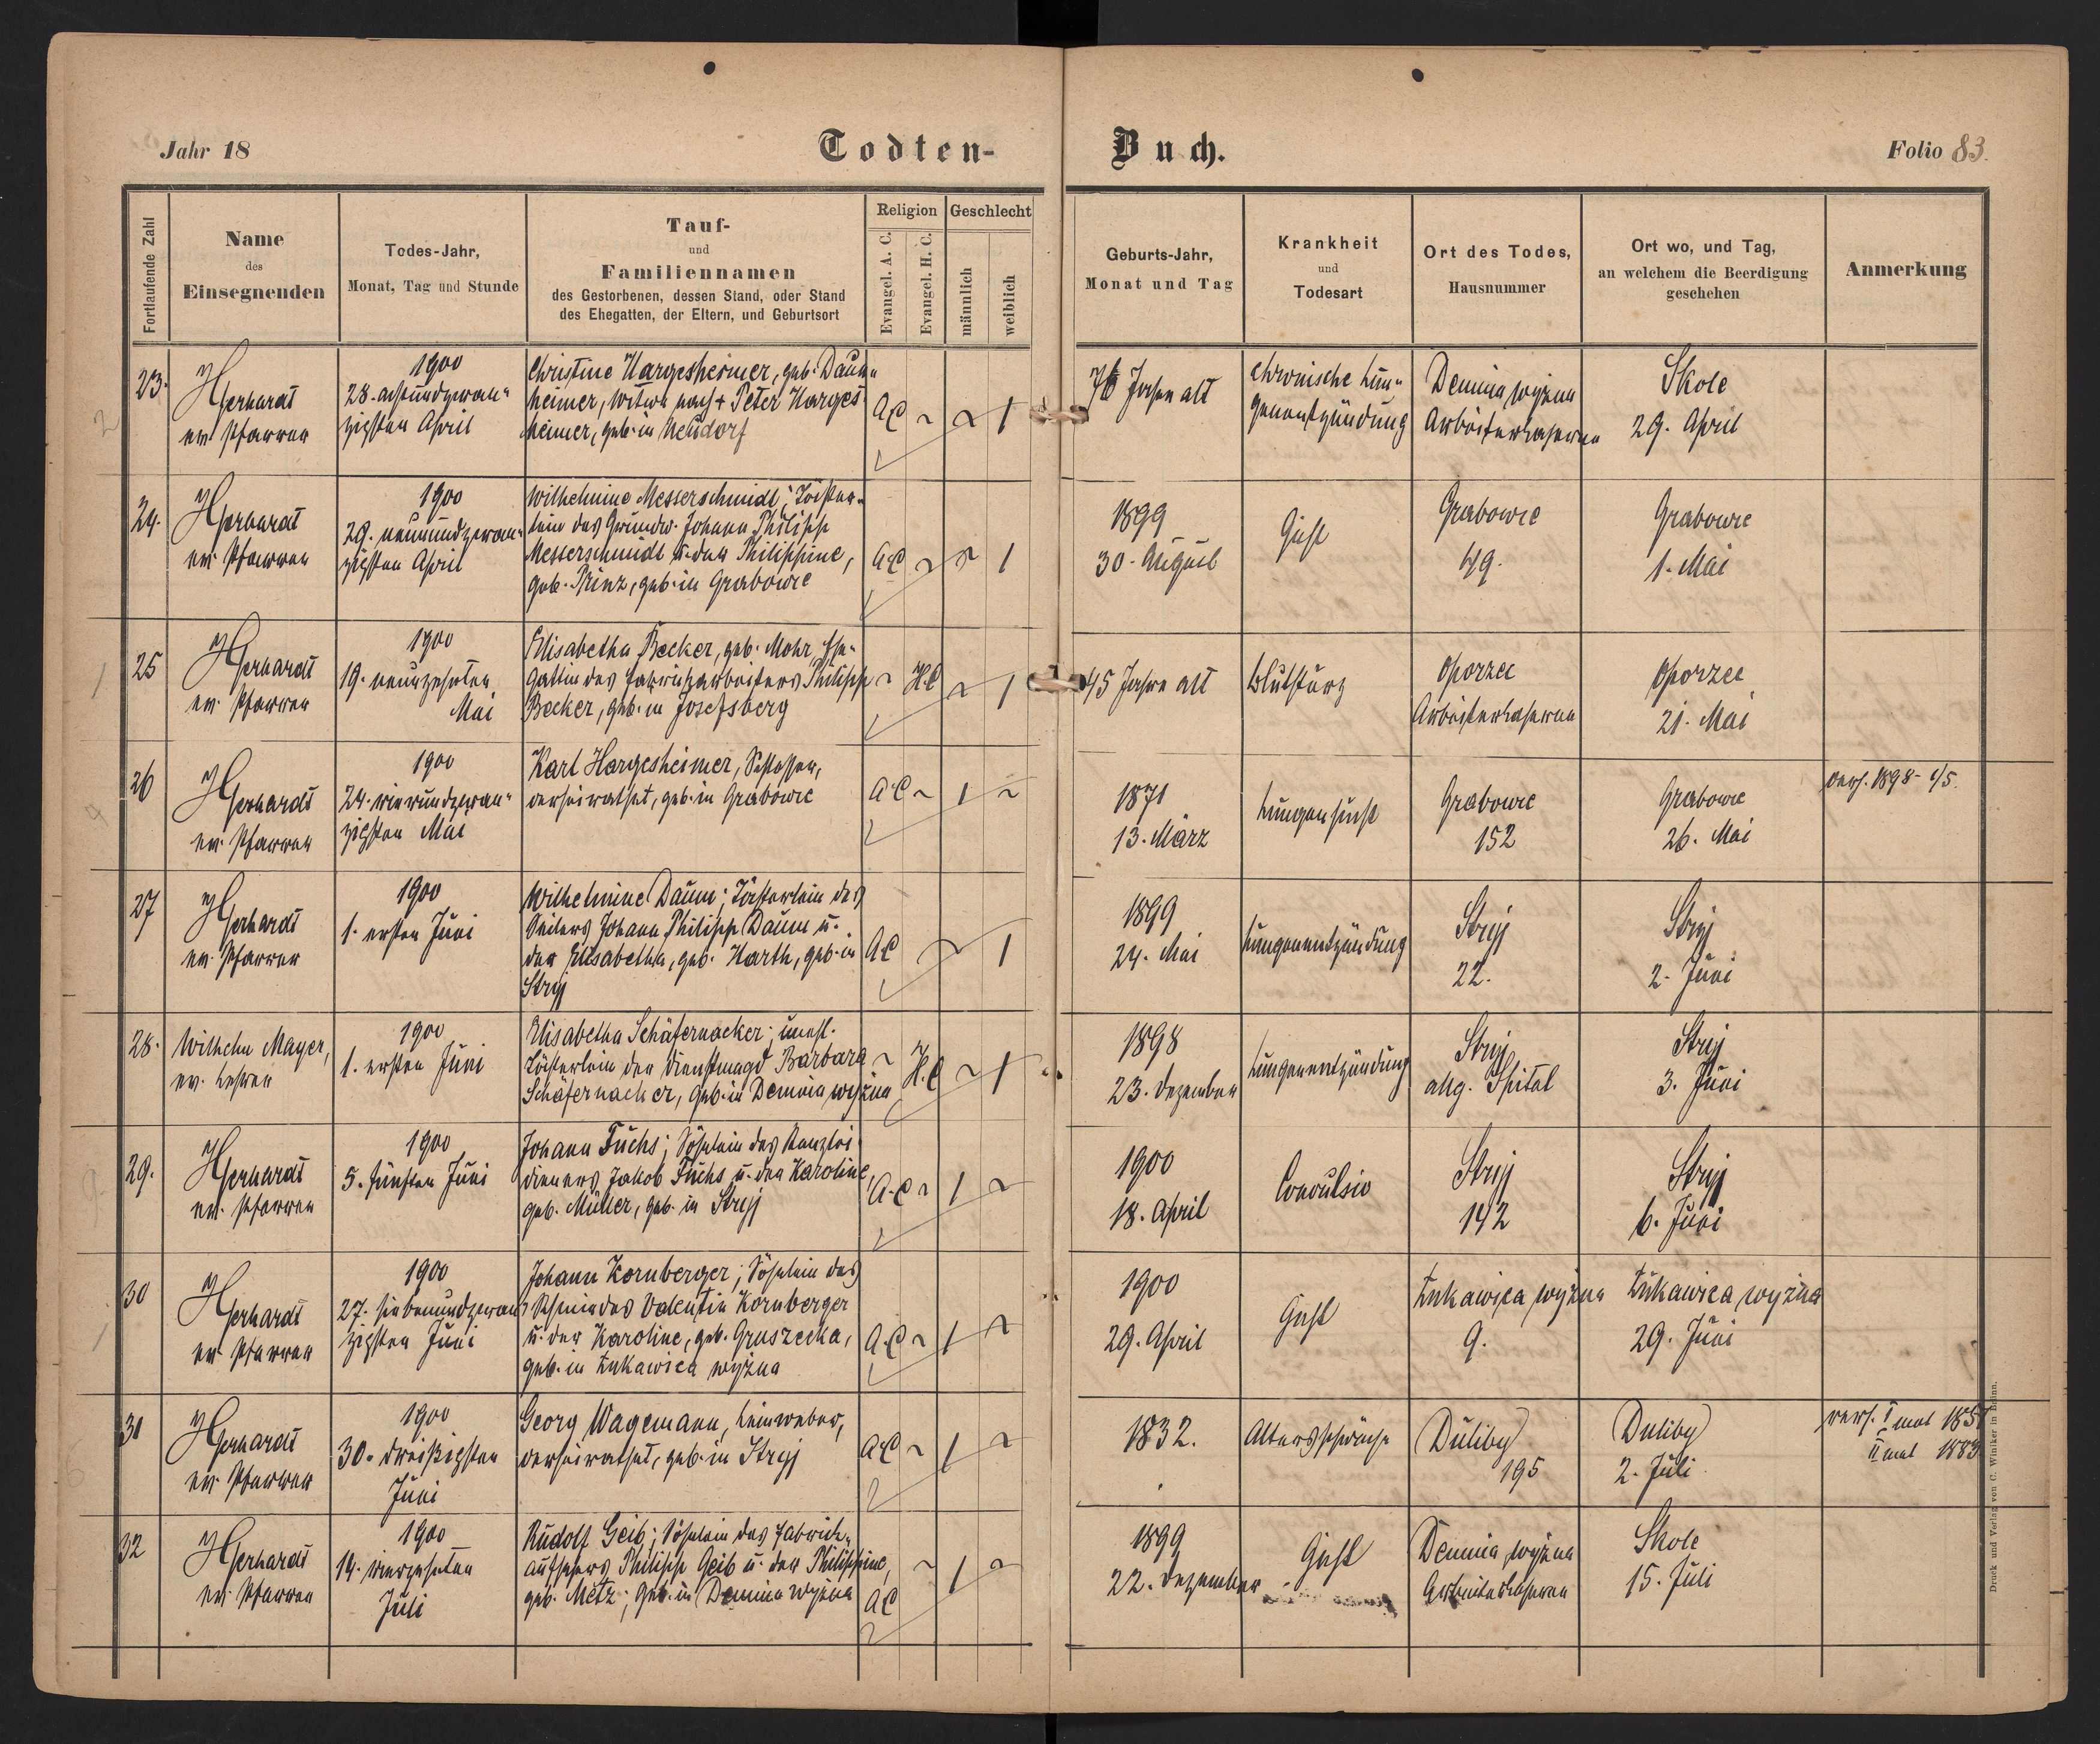 Jahr 18
Todten-
Buch.
Folio 83.
Fortlaufende Zahl
Name
des
Einsegnenden
Todes-Jahr,
Monat, Tag und Stunde
Tauf-
und
Familiennamen
des Gestorbenen, dessen Stand, oder Stand
des Ehegatten, der Eltern, und Geburtsort
Religion
Evangel. A. C.
Evangel. H. C.
Geschlecht
männlich
weiblich
Geburts-Jahr,
Monat und Tag
Krankheit
und
Todesart
Ort des Todes,
Hausnummer
Ort wo, und Tag,
an welchem die Beerdigung
geschehen
Anmerkung
23.
Gerhardt
ev. Pfarrer
1900
28. achtundzwan-
zigsten April
Christine Hargesheimer, geb. Daun-
heimer, Witwe nach + Peter Harges
heimer, geb. in Neudorf
A.C ~ ~ 1
76 Jahre alt
Chronische Lun-
genentzündung
Demnia wyżna
Arbeiterkaserne
Skole
29. April
24.
Gerhardt
ev. Pfarrer
1900
29. neunundzwan-
zigsten April
Wilhelmine Messerschmidt; Töchter-
lein des Grundw. Johann Philipp
Messerschmidt u. der Philippine,
geb. Prinz, geb. in Grabowce
A.C ~ ~ 1
1899
30. August
Gicht
Grabowce
49.
Grabowce
1. Mai
25
Gerhardt
ev. Pfarrer
1900
19. neunzehnten
Mai
Elisabetha Becker, geb. Mohr, Ehe-
gattin des Fabriksarbeiters Philipp
Becker, geb. in Josefsberg
~ H.C ~ 1
45 Jahre alt
Blutsturz
Oporzec
Arbeiterkaserne
Oporzec
21. Mai
26
Gerhardt
ev. Pfarrer
1900
24. vierundzwan-
zigsten Mai
Karl Hargesheimer, Schlosser,
verheirathet, geb. in Grabowce
A.C ~ 1 ~
1871
13. März
Lungensucht
Grabowce
152
Grabowce
26. Mai
verh. 1898 1/5.
27
Gerhardt
ev. Pfarrer
1900
1. ersten Juni
Wilhelmine Daum; Töchterlein des
Seilers Johann Philipp Daum u.
der Elisabetha, geb. Harth, geb. in
Stryj
A.C ~ 1
1899
24. Mai
Lungenentzündung
Stryj
22.
Stryj
2. Juni
28.
Wilhelm Mayer,
ev. Lehrer
1900
1. ersten Juni
Elisabetha Schäfernacker; unehl.
Töchterlein der Dienstmagd Barbara
Schäfernacker, geb. in Demnia wyżna
~ H.C ~ 1
1898
23. Dezember
Lungenentzündung
Stryj
allg. Spital
Stryj
3. Juni
29.
Gerhardt
ev. Pfarrer
1900
5. fünften Juni
Johann Fuchs; Söhnlein des Kanzlei
dieners Jakob Fuchs u. der Karoline,
geb. Müller, geb. in Stryj
A.C ~ 1 ~
1900
18. April
Convulsio
Stryj
142
Stryj
6. Juni
30
Gerhardt
ev. Pfarrer
1900
27. siebenundzwan
zigsten Juni
Johann Kornberger; Söhnlein des
Schmiedes Valentin Kornberger
u. der Karoline, geb. Gruszecka,
geb. in Łukawica wyżna
A.C ~ 1 ~
1900
29. April
Gicht
Łukawica wyżna
9.
Łukawica wyżna
29. Juni
31
Gerhardt
ev. Pfarrer
1900
30. dreißigsten
Juni
Georg Wagemann, Leinweber,
verheirathet, geb. in Stryj
A.C ~ 1 ~
1832.
Altersschwäche
Duliby
195
Duliby
2. Juli
verh. I mal 1857
II mal 1883
32
Gerhardt
ev. Pfarrer
1900
14. vierzehnten
Juli
Rudolf Geib; Söhnlein des Fabrick-
aufsehers Philipp Geib u. der Philippine,
geb. Metz; geb. in Demnia wyżna
A.C ~ 1 ~
1899
22. Dezember
Gicht
Demnia wyżna
Arbeiterkaserne
Skole
15. Juli
Druck und Verlag von C. Winiker in Brünn.